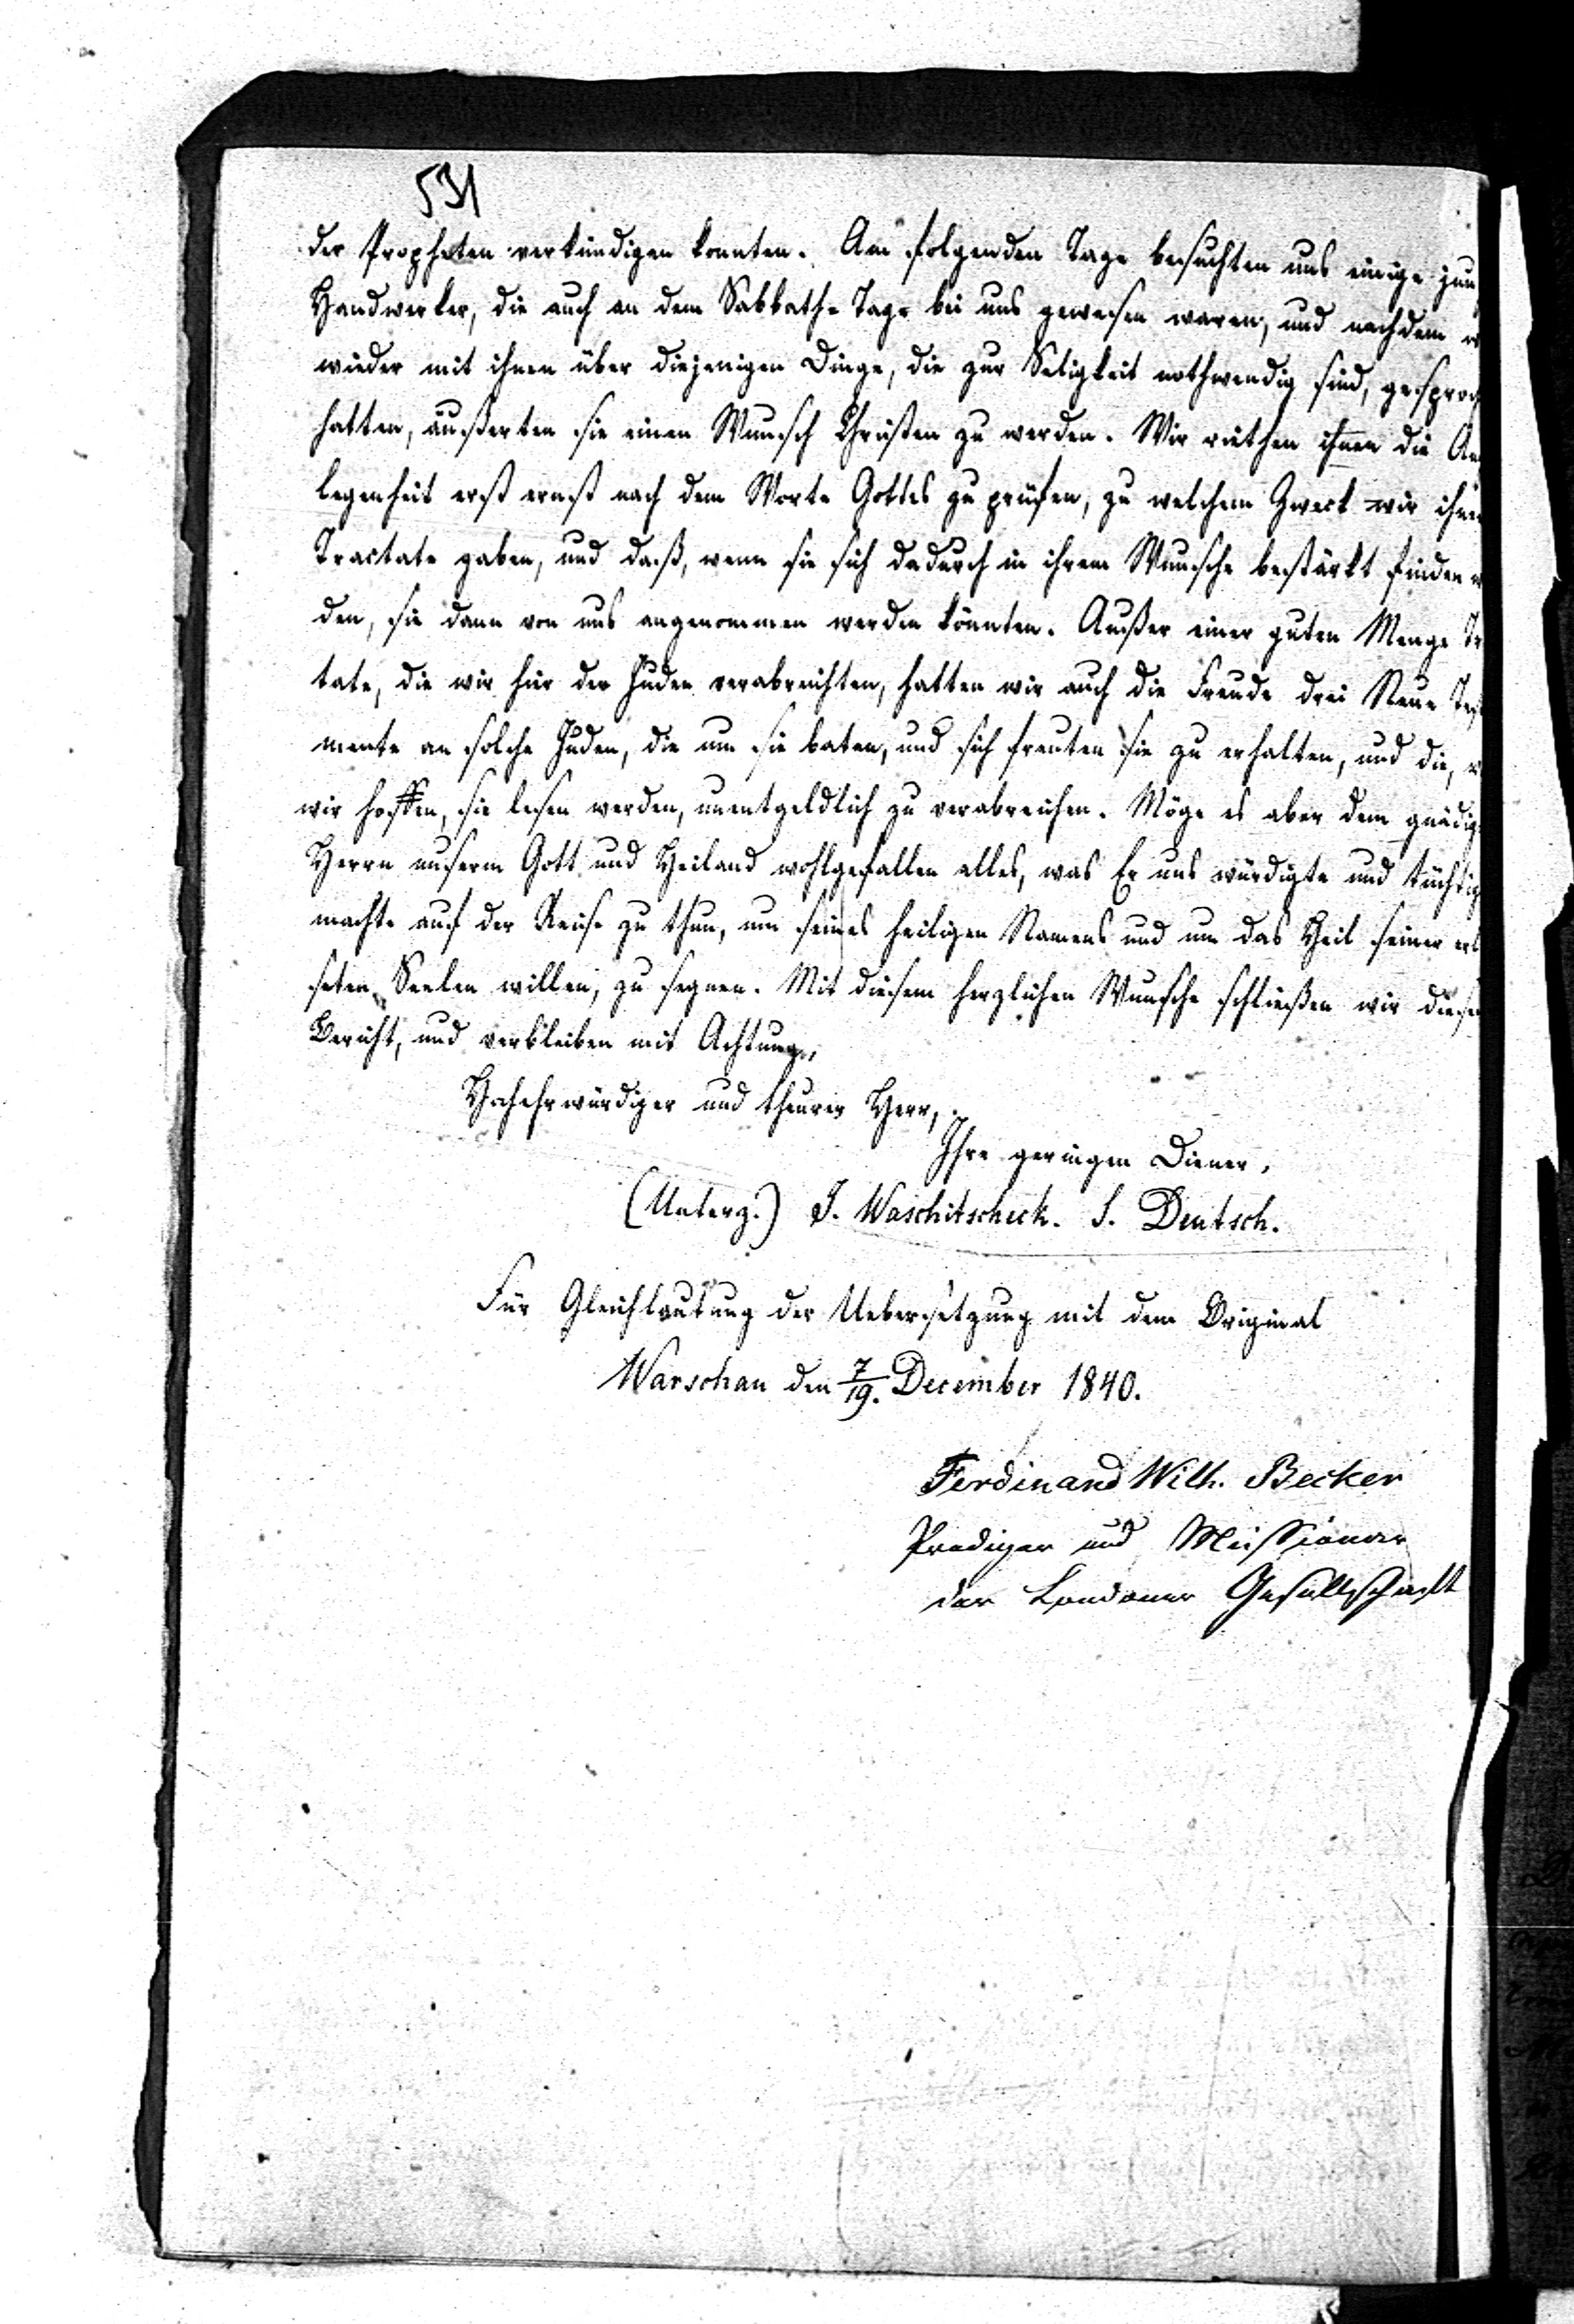 531
der Propheten verkündigen konnten. Am folgenden Tage besuchten uns einige jun
Handwerker, die auch an dem Sabbath-Tage bei uns gewesen waren, und nachdem w
wieder mit ihnen über diejenigen Dinge, die zur Seligkeit nothwendig sind, gesproch
hatten, äußerten sie einen Wunsch Christen zu werden. Wir riethen ihnen die An
legenheit erst ernst nach dem Worte Gottes zu prüfen, zu welchem Zweck wir ihnen
Tractate gaben, und daß, wenn sie sich dadurch in ihrem Wunsche bestärkt finden w
den, sie dann von uns angenommen werden könnten. Außer einer guten Menge Tr
tate, die wir hier der Juden verabreichten, hatten wir auch die Freude drei Neue Tes
mente an solche Juden, die um sie baten, und sich freuten sie zu erhalten, und die, w
wir hoffen, sie lesen werden, unentgeldlich zu verabreichen. Möge es aber dem gnädig
Herrn unserm Gott und Heiland wohlgefallen alles, was Er uns würdigte und tüchtig
machte auf der Reise zu thun, um seines heiligen Namens und um das Heil seiner erl
seten Seelen willen, zu segnen. Mit diesem herzlichen Wunsche schließen wir diesen
Bericht, und verbleiben mit Achtung,
Hochehrwürdiger und theurer Herr,
Ihre geringen Diener,
(Unterz.) J. Waschitscheck. S. Deutsch.
Für Gleichlautung der Uebersetzung mit dem Original
Warschau den 7/19. December 1840.
Ferdinand Wilh. Becker
Prediger und Missionar
der Londoner Gesellschaft